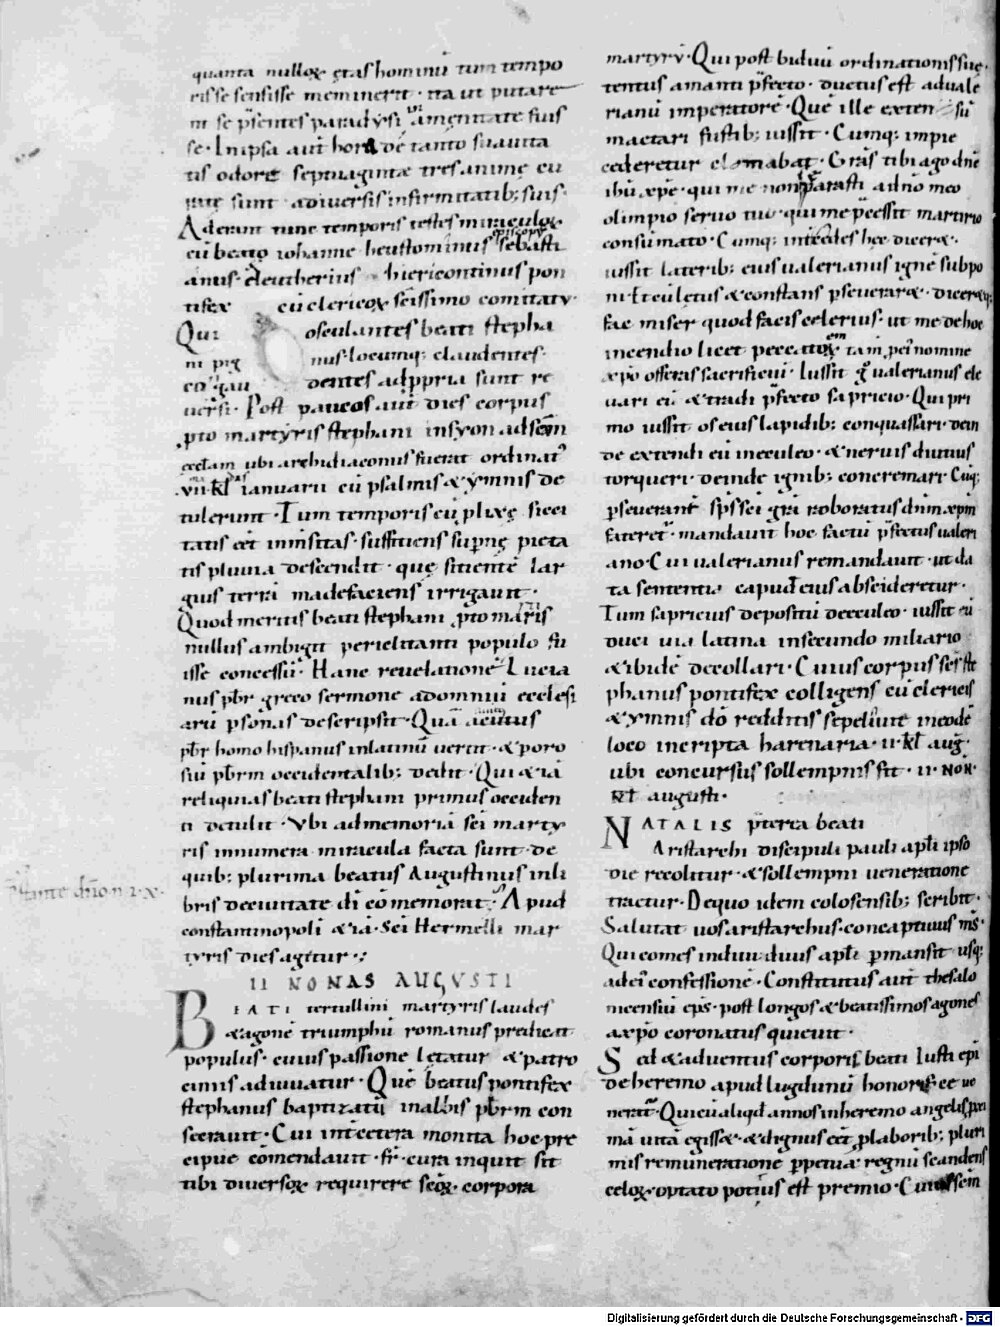 quanta nulloꝝ ętas hominū tum tempo
ris se sensisse meminerit · ita ut putare
nt se p̄sentes paradysi amęnitate fuis
se · In ipsa aut̄ hora de tanto suauita
tis odore septuaginta tres animę cu
ratę sunt a diuersis infirmitatib; suis ·
Aderant tunc temporis testes miraculoꝝ
cū beato iohanne heustominus episcopus sebasti
anus · eleutherius hiericontinus pon
tifex cū clericoꝝ sc̄issimo comitatu ·
Qui osculantes beati stepha
ni pig nus · locumq; claudentes ·
cū gau dentes ad p̄pria sunt re
uersi · Post paucos aut̄ dies corpus
p̄to martyris stephani in syon ad sc̄am
eccl̄am ubi archidiaconus fuerat ordinatꝰ
vii · kl̄ ianuarii cū psalmis & ymnis de
tulerunt · Tum temporis cū plixę sicci
tatis eēt inmsitas · sufficiens supnę pieta
tis pluuia descendit · quę sitientē lar
gius terrā madefaciens irrigauit ·
Quod meritis beati stephani p̄to martiris
nullus ambigit periclitanti populo fu
isse concessū · Hanc reuelationē Lucia
nus pbr̄ greco sermone ad omniū ecclesi
arū p̄sonas descripsit · Quā auitus
pbr̄ homo hispanus in latinū uertit · & poro
siū pbrm̄ occidentalib; dedit · Qui & iā
reliquias beati stephani primus occiden
ti detulit · Vbi ad memoriā sc̄i marty
ris innumera miracula facta sunt · de
quib; plurima beatus Augustinus in li
bris de ciuitate dī cōmemorat · Apud
constantinopoli & iā · sc̄i Hermelli mar
tyris dies agitur ·:
II NONAS AUGUSTI
BEATI tertullini martyris laudes
& agonē triumphū romanus predicat
populus · cuius passione lętatur & patro
ciniis adiuuatur · Quē beatus pontifex
stephanus baptizatū in albis pbrm̄ con
secrauit · Cui int̄ cetera monita hoc pre
cipue cōmendauit · fr̄ · cura inquit sit
tibi diuersoꝝ requirere sc̄oꝝ · corpora
martyrū · Qui post biduū ordinationis suę
tentus a manti p̄fecto · ductus est ad uale
rianū imperatorē · Quē ille exten sū
mactari fustib; iussit · Cumq; impie
cederetur clamabat · Grās tibi ago dn̄e
ihū xp̄e · qui me non separasti a dn̄o meo
olimpio seruo tuo · qui me p̄cessit martirio
consūmato · Cumq; int̄ cedes hęc dicer& ·
iussit laterib; eius ualerianus ignē subpo
ni · Et cū lętus & constans p̄seuerar& · dicer&q;
fac miser quod facis celerius · ut me de hoc
incendio licet peccatorem tam p̄ ei nomine
& xp̄o offeras sacrificiū · Iussit g̊ ualerianus ele
uari eū & tradi p̄fecto sapricio · Qui pri
mo iussit os eius lapidib; conquassari · dein
de extendi eū in eculeo · & neruis diutius
torqueri · deinde ignib; concremari · Cūq;
p̄seuerant̄ sp̄s sc̄i gr̄a roboratus dnm̄ & xpm̄
fateret̄ · mandauit hoc factū p̄fectus ualeri
ano · Cui ualerianus remandauit · ut da
ta sententia capud eius abscideretur ·
Tum sapricius depositū de eculeo · iussit eū
duci uia latina in secundo miliario
& ibidē decollari · Cuius corpus sc̄s ste
phanus pontifex colligens cū clericis
& ymnis dō redditis sepeliuit in eodē
loco in cripta harenaria · ii · kl̄ aug̅ ·
ubi concursus sollempnis fit · ii · NON ·
kl̄ augusti ·
NATALIS p̄terea beati
Aristarchi discipuli pauli apłi ipso
die recolitur · & sollempni ueneratione
tractur · De quo idem colosensib; scribit ·
Salutat uos aristarchus · concaptiuus ms̄ ·
Qui comes indiuiduus apłi p̄mansit usq;
ad ei confessionē · Constitutus aut̄ thesalo
nicensiū ep̄s · post longos & beatissimos agones
a xp̄o coronatus quieuit ·
Sed & aduentus corporis beati Iusti ep̄i
de heremo apud lugdunū honoris ēē ue
nerat · Qui cū aliqd̄ annos in heremo angelis pxi
mā uitā egiss& · & dignus eēt p̄ laborib; pluri
mis remuneratione p̄petua regnū scandens
celoꝝ · optato potius est premio · Cuius sem
Digitalisierung gefördert durch die Deutsche Forschungsgemeinschaft - DFG